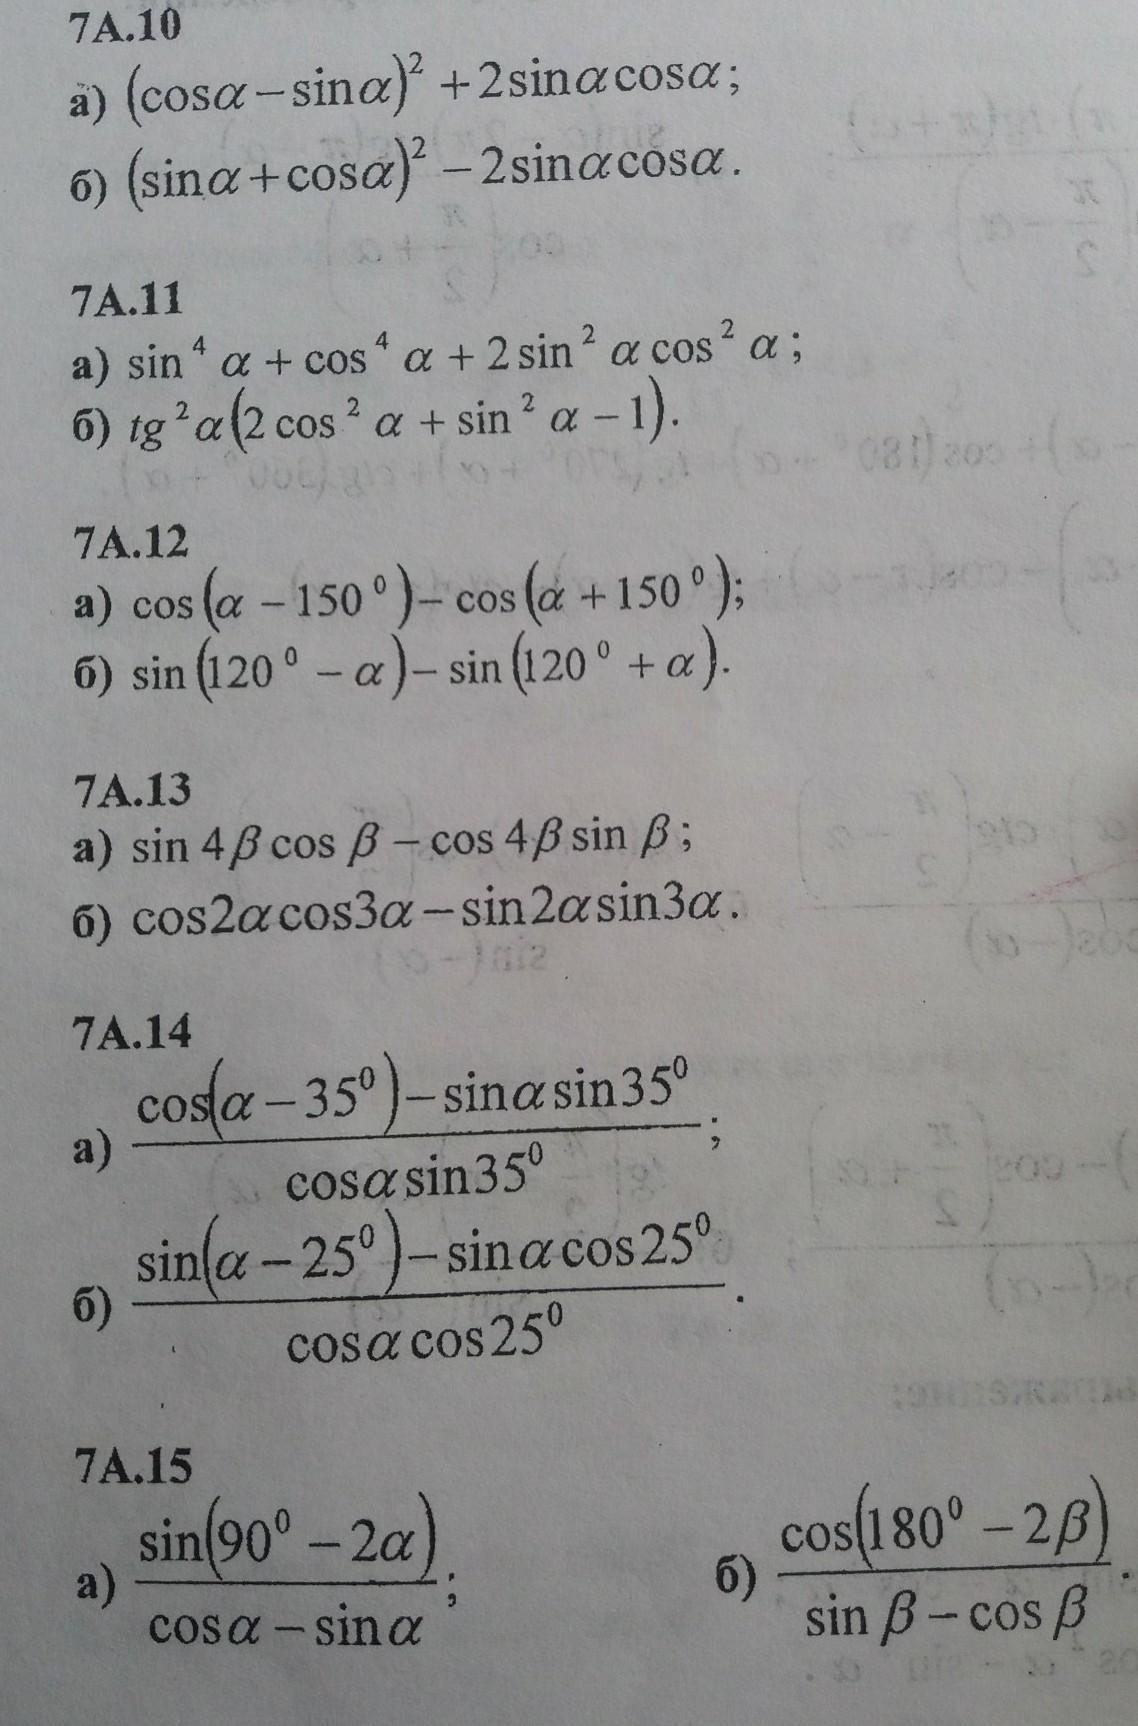 7А.10
а) (cosα − sinα)² + 2sinα cosα;
б) (sinα + cosα)² − 2sinα cosα.
7А.11
а) sin⁴ α + cos⁴ α + 2 sin² α cos² α;
б) tg²α(2 cos² α + sin² α − 1).
7А.12
а) cos(α − 150⁰) − cos(α + 150⁰);
б) sin(120⁰ − α) − sin(120⁰ + α).
7А.13
а) sin 4β cos β − cos 4β sin β;
б) cos2α cos3α − sin2α sin3α.
7А.14
cos(α − 35⁰) − sinα sin35⁰
а) ;
cosα sin35⁰
sin(α − 25⁰) − sinα cos25⁰
б) .
cosα cos25⁰
7А.15
sin(90⁰ − 2α) cos(180⁰ − 2β)
а) ; б) .
cosα − sinα sin β − cos β